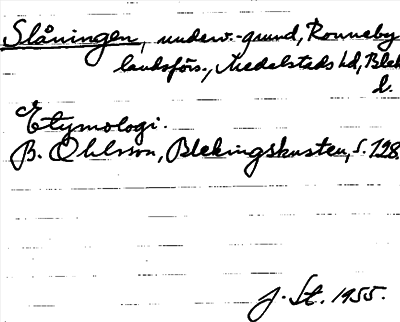 Slåningen, underv.-grund, Ronneby
landsförs., Medelstads hd, Blek
l.
Etymologi.
B. Ohlsson, Blekingskusten, s. 128.
J. St. 1955.